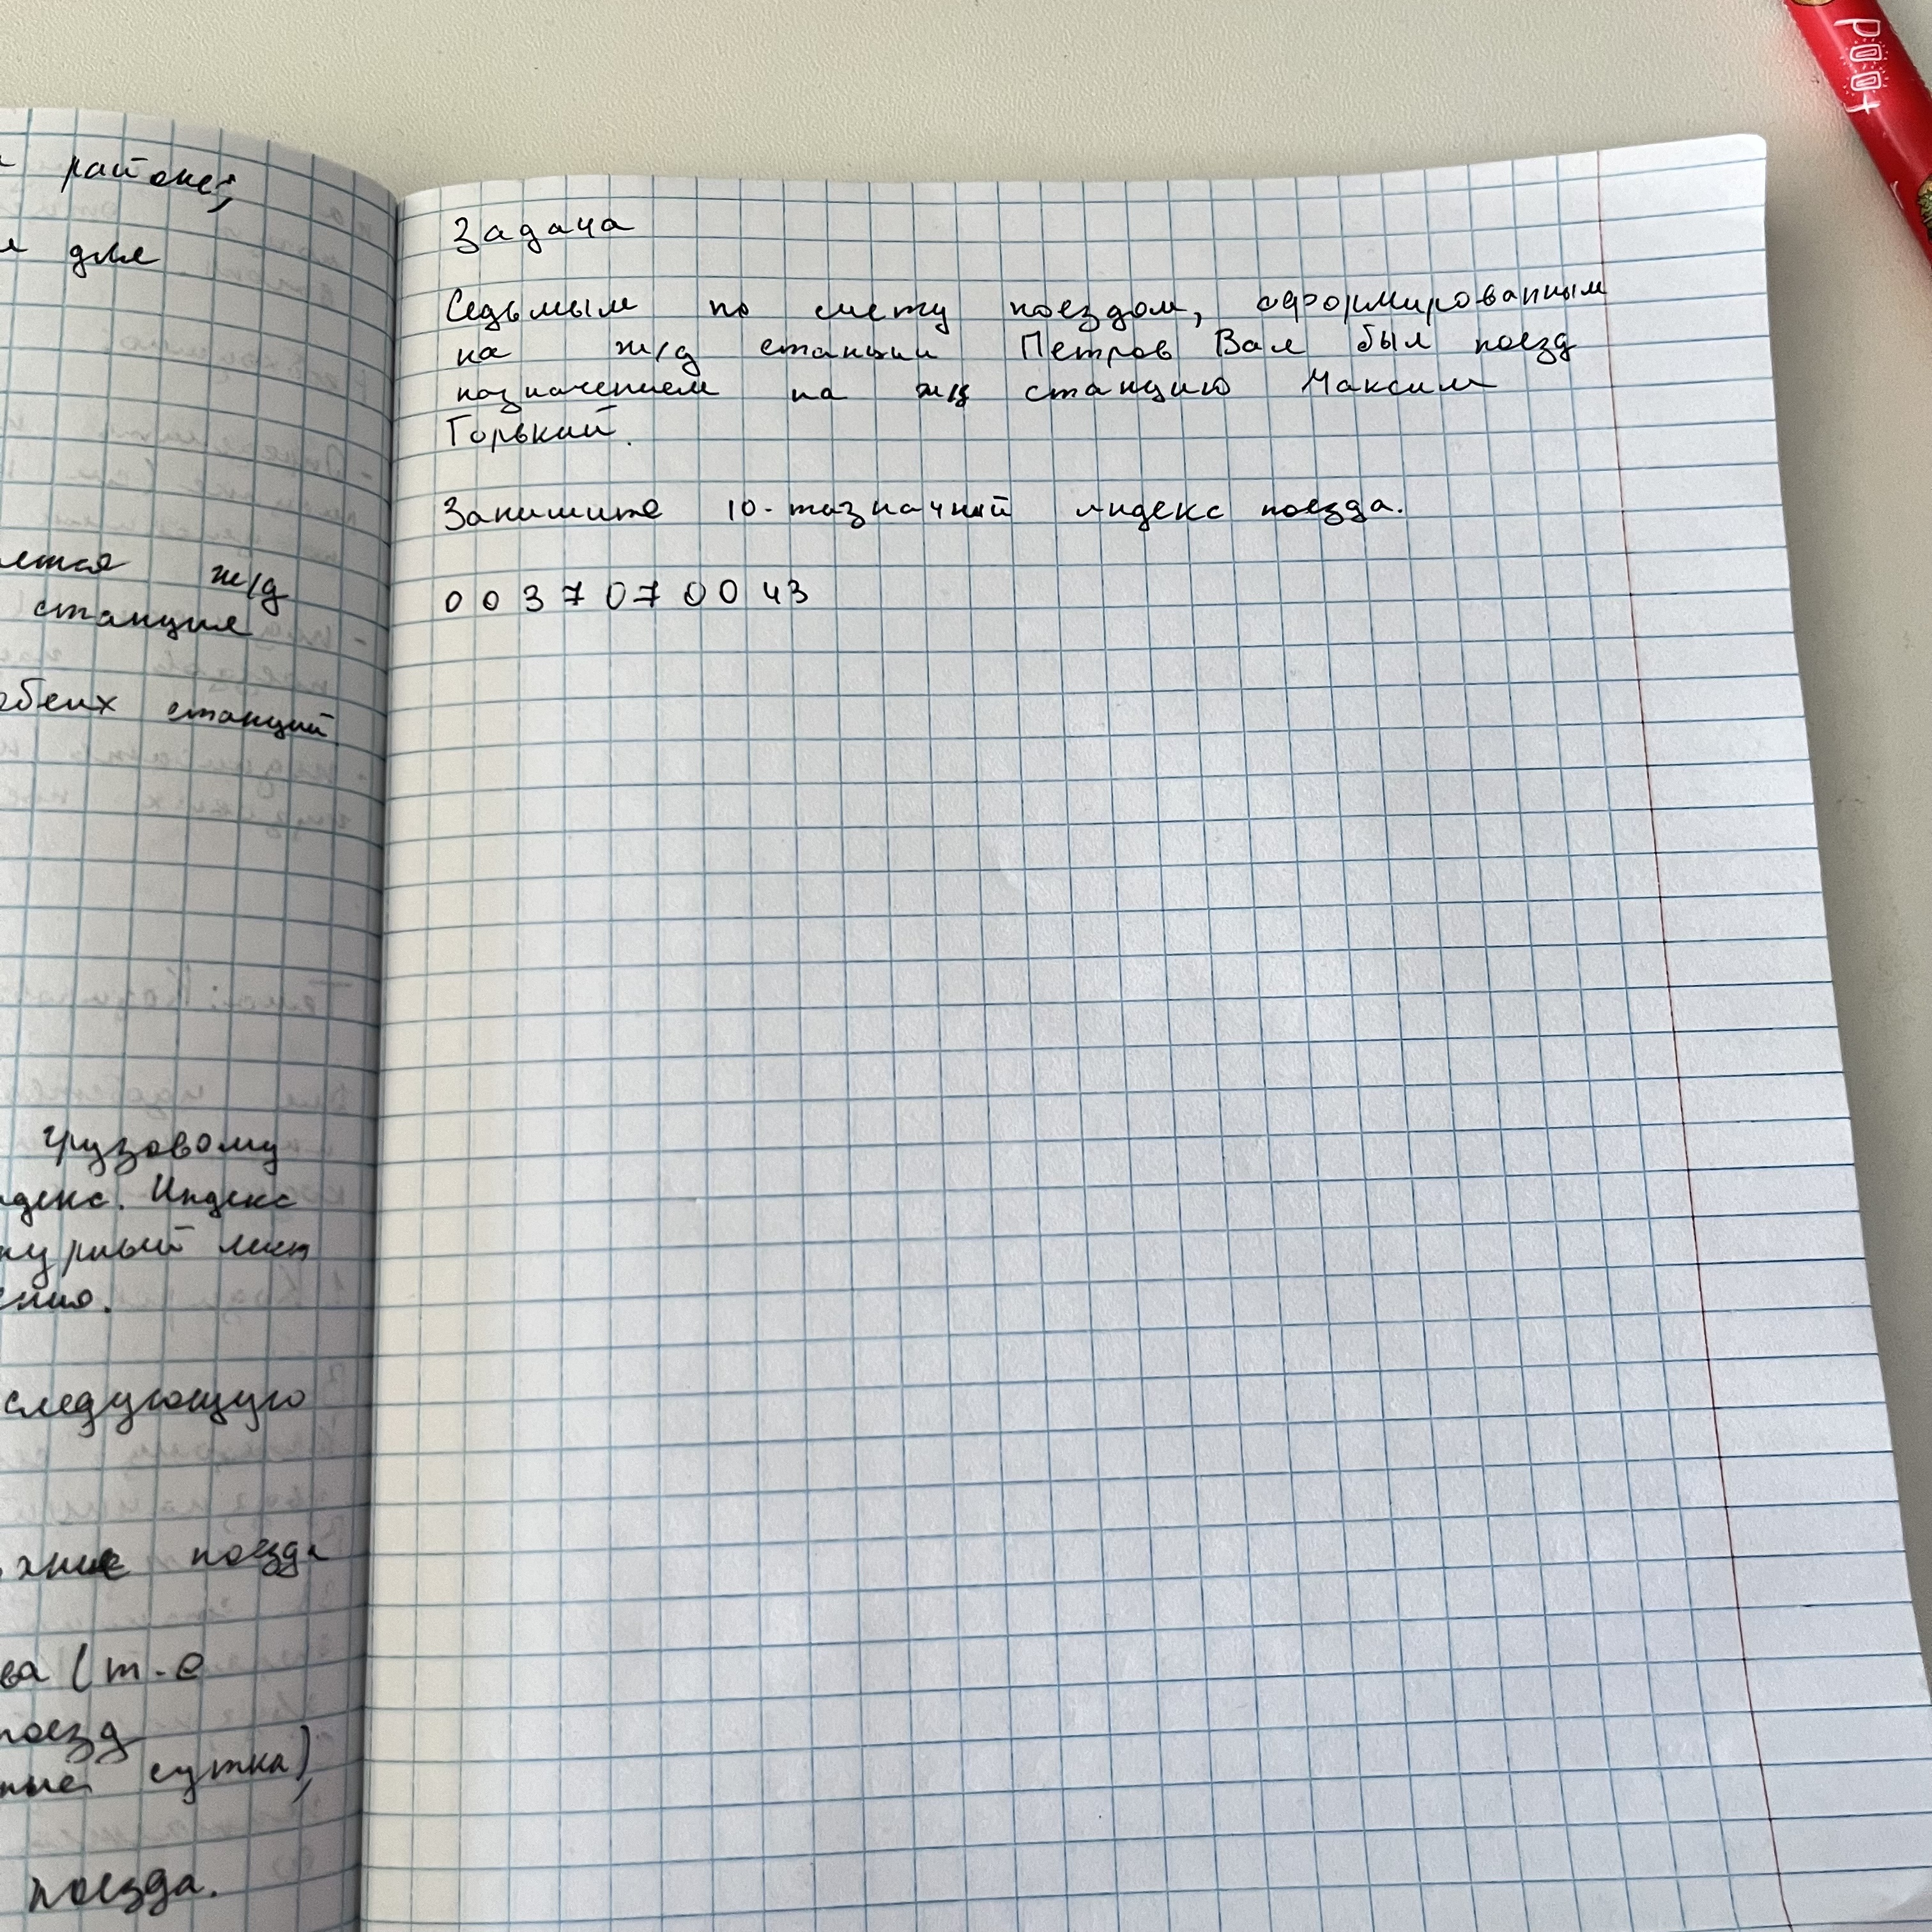 районе;
для
ж/д
станция
обеих станций.
грузовому
Индекс
следующую
поезда
(т.е
поезд
сутка),
поезда.
Задача
Седьмым по счету поездом, сформированным
на ж/д станции Петров Вал был поезд
назначением на ж/д станцию Максим
Горький.
Запишите 10-тизначный индекс поезда.
0 0 3 7 0 7 0 0 4 3